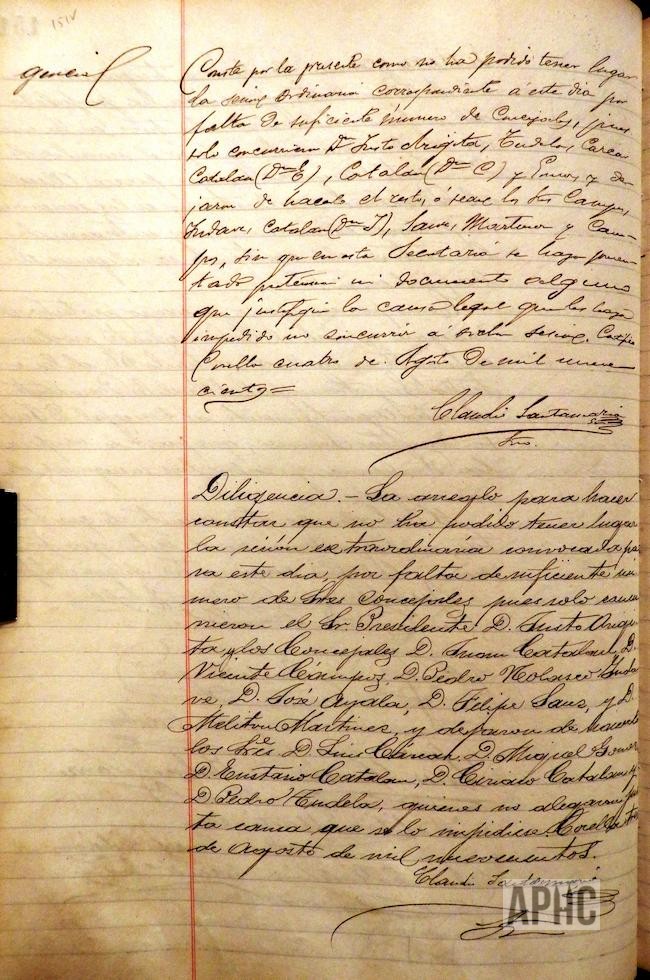 151v
gencia
Conste por la presente como no ha podido tener lugar
la sesion ordinaria correspondiente á este dia por
falta de suficiente número de Concejales, pues
solo concurrieron Dn Justo Arigita, Tudela,
Catalan (Dn E), Catalan (Dn C) y y de
jaron de hacerlo el resto, ó sease los Sres Campos,
Indave, Catalan (Dn J), Sanz, Martinez y Cam
pos, sin que en esta Secretaría se haya presen
tado ni documento alguno
que justifique la causa legal que les haya
impedido no concurrir á dicha sesion. Certifico
Corella cuatro de Agosto de mil nueve
cientos=
Claudio Santamaria
Srio.
Diligencia.- La arreglo para hacer
constar que no ha podido tener lugar
la sesión extraordinaria convocada pa
ra este dia, por falta de suficiente nú
mero de Sres Concejales pues solo concu
rrieron el Sr. Presidente D. Justo Arigi
ta y los Concejales D. Juan Catalan, D.
Vicente Campos, D. Pedro Nolasco Inda
ve, D. José Ayala, D. Felipe Sanz, y D.
Meliton Martinez, y dejaron de hacerlo
los Sres D. Luis D. Miguel Gomez
D. Eustasio Catalan, D. Ciriaco Catalan y
D Pedro Tudela, quienes no alegaron jus
ta causa que se lo impidiese Corella
de Agosto de mil novecientos.
Claudio Santamaria
APHC